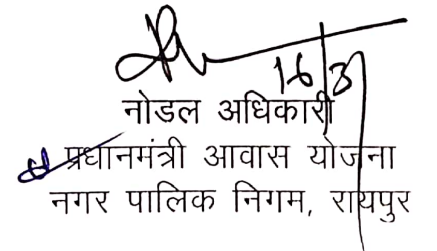 16/3
नोडल अधिकारी
प्रधानमंत्री आवास योजना
नगर पालिक निगम, रायपुर